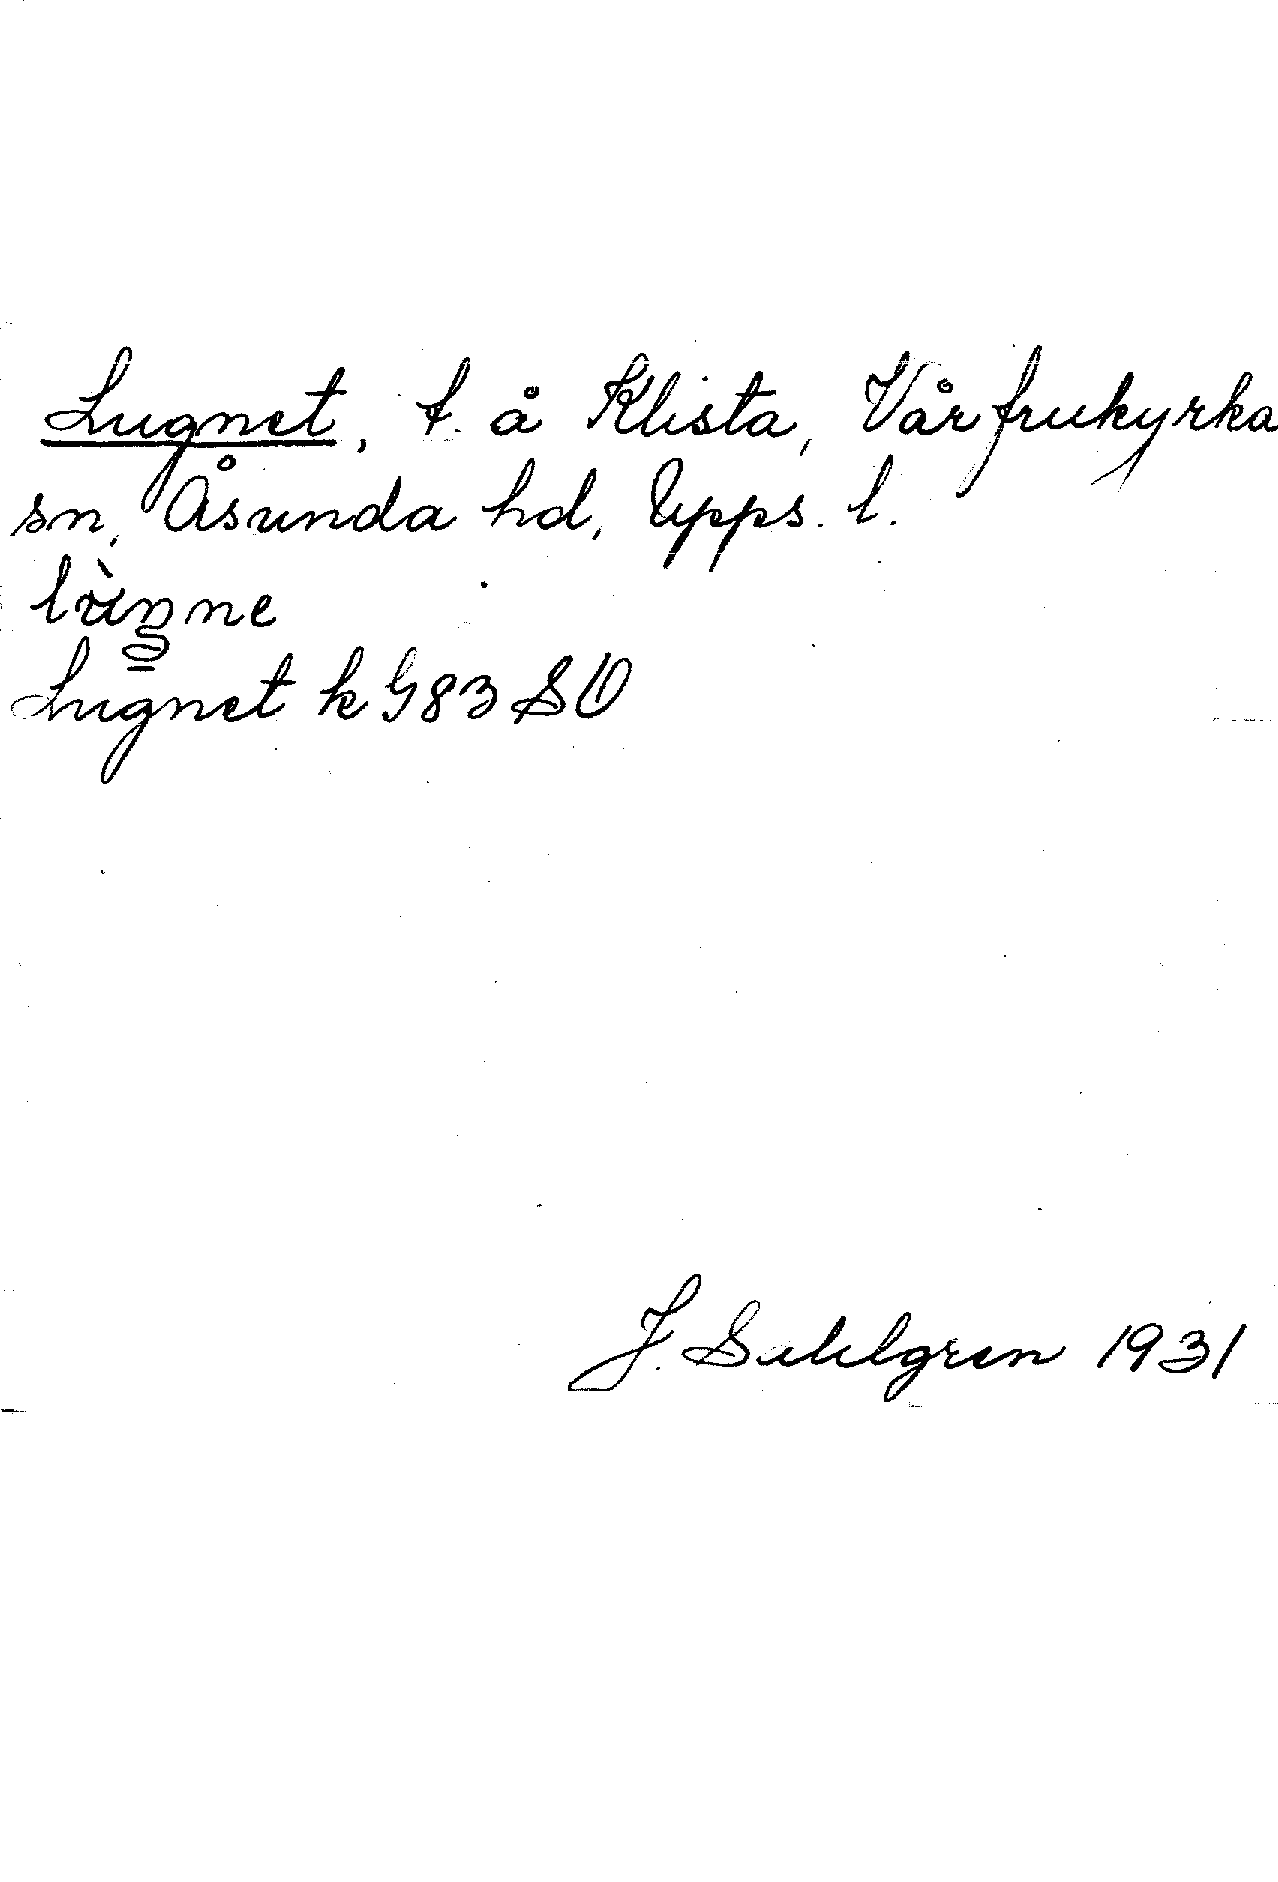 Lugnet, t. å Klista, Vårfrukyrka
sn, Åsunda hd, Upps. l.
lùŋne
Lugnet k G83 SO
J. Sahlgren 1931